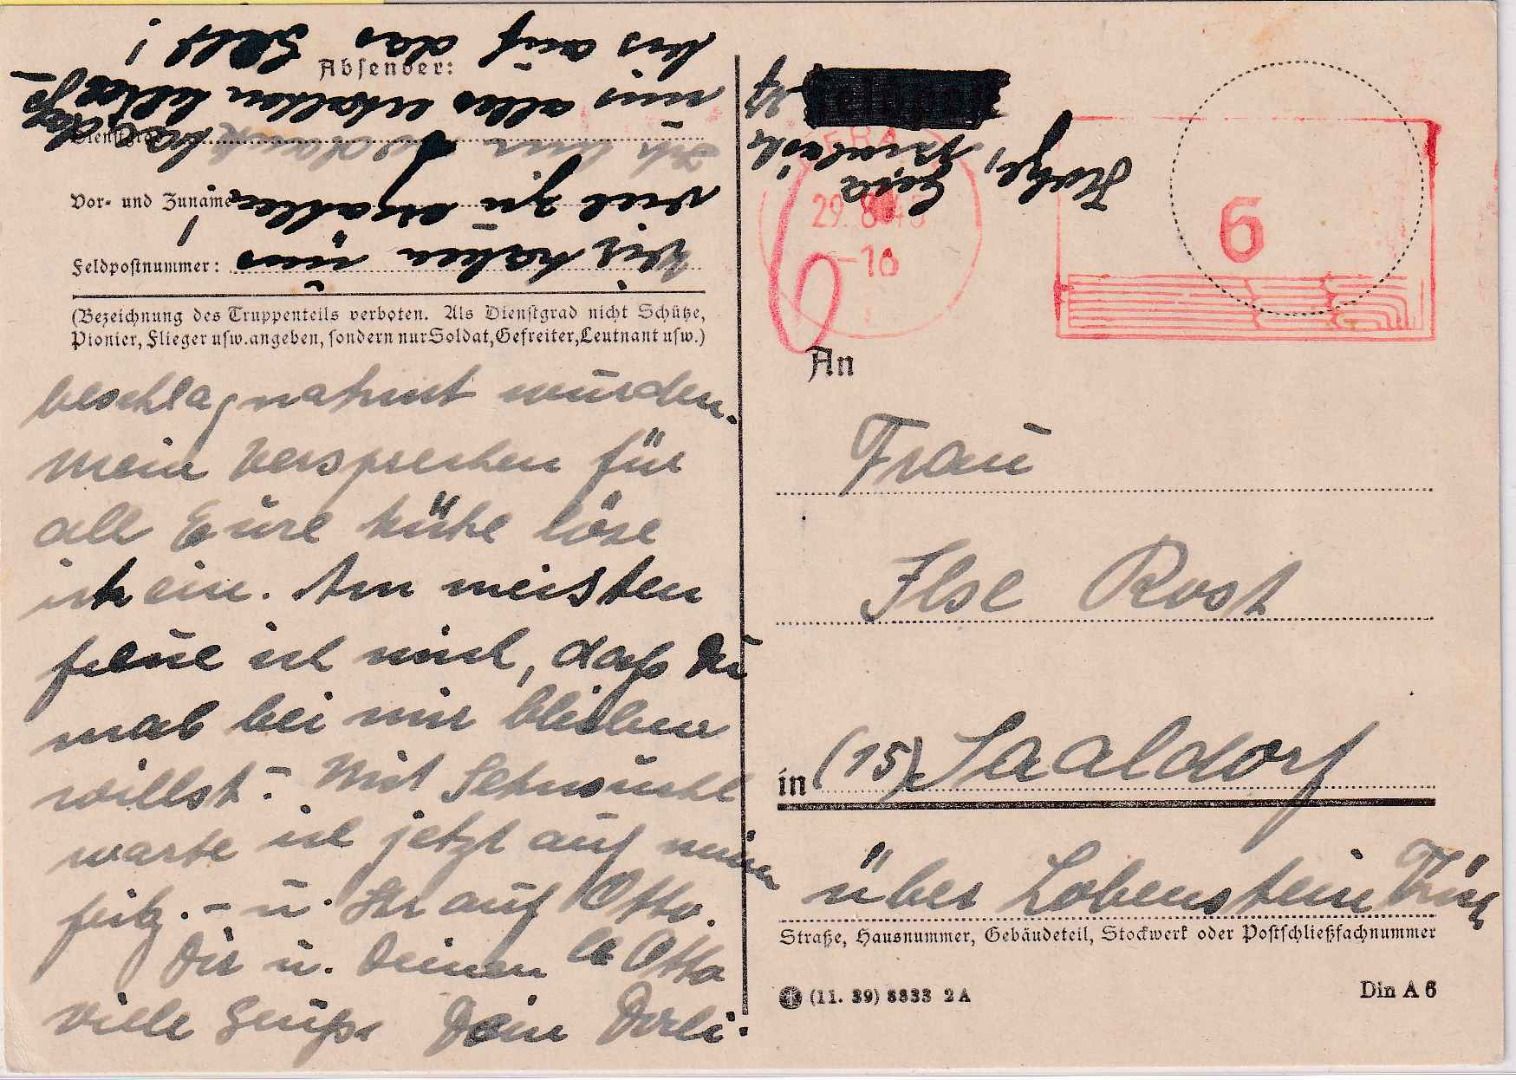 Absender:
Dienstgrad:
Vor- und Zuname:
Feldpostnummer:
(Bezeichnung des Truppenteils verboten. Als Dienstgrad nicht Schütze,
Pionier, Flieger usw. angeben, sondern nur Soldat, Gefreiter, Leutnant usw.)
beschlagnahmt wurden.
Mein Versprechen für
all Eure Mühe löse
ich ein. Am meisten
freue ich mich, daß Du
mal bei mir bleiben
willst. Mit Sehnsucht
warte ich jetzt auf meinen
Fritz. - u. Ihr auf Otto.
Dir u. Deinen lb Otto
viele Grüße Dein
Wir haben uns
viel zu erzählen!
Ich bin
uns alles erhalten
bis auf das Geld!
Gera
GERA
29. 8. 46
-16
6
An
Frau
Ilse Rost
in (15) Saaldorf
über Lobenstein Thür
Straße, Hausnummer, Gebäudeteil, Stockwerk oder Postschließfachnummer
(11. 39) 8833 2 A
Din A 6